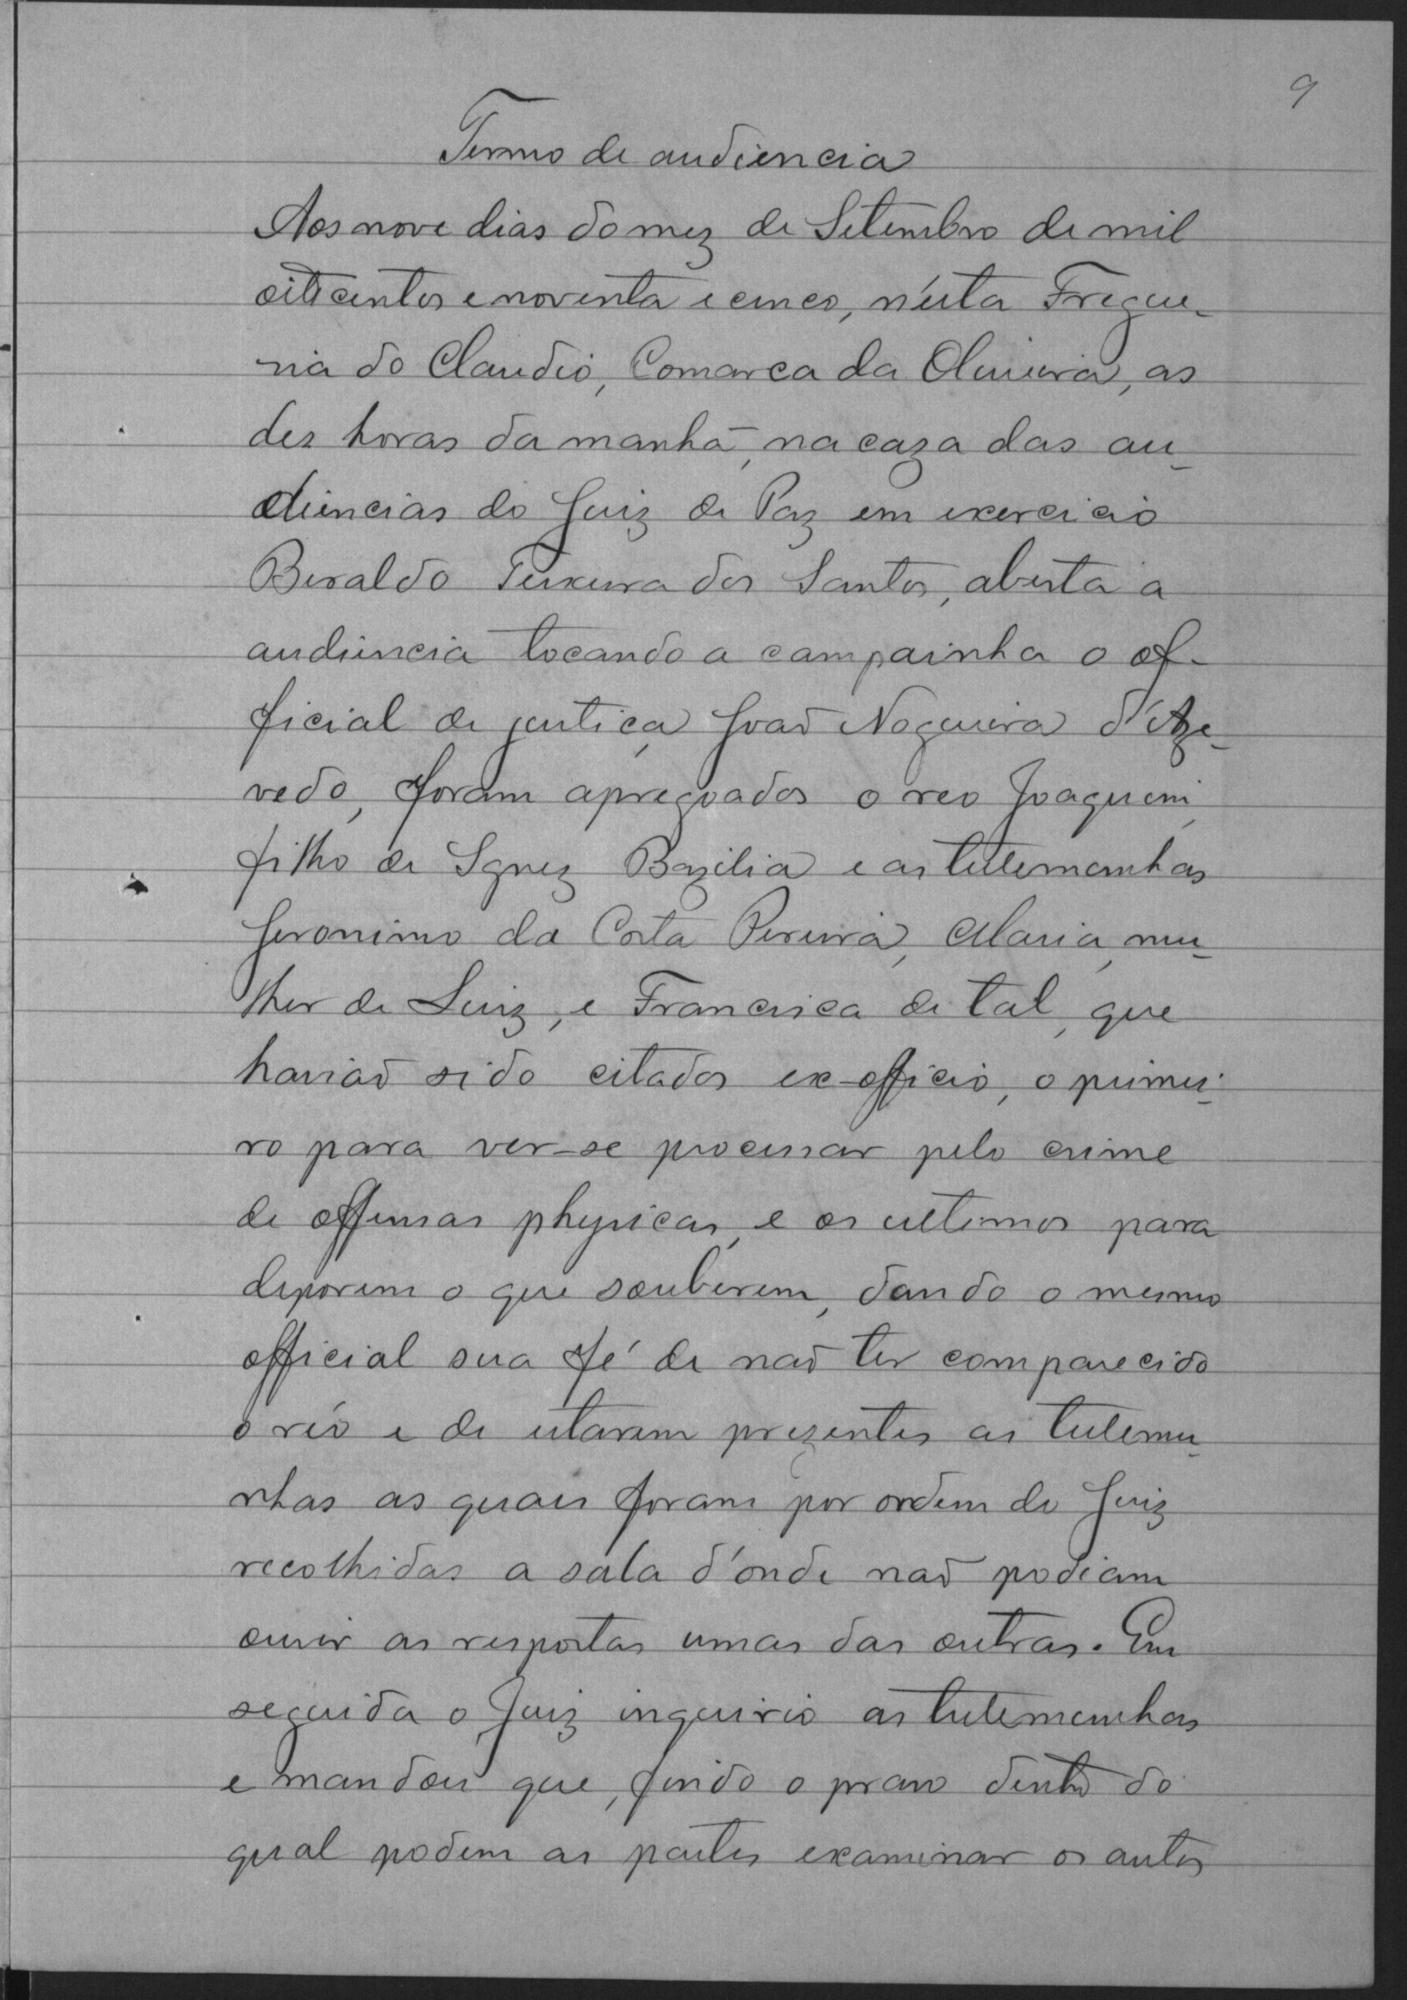 9
Termo de audiencia
Aos nove dias do mez de Setembro de mil
oitocentos e noventa e cinco, n'esta Fregue-
sia do Claudio, Comarca da Oliveira, as
des horas da manhã, na caza das au-
diencias do Juiz de Paz em exercicio
Beraldo Teixeira dos Santos, aberta a
audiencia tocando a campainha o of-
ficial de justiça João Nogueira d'Aze-
vedo, foram apregoados o reo Joaquim,
filho de Ignez Bazilia e as testemunhas
Jeronimo da Costa Pereira, Maria, mu-
lher de Luiz, e Francisca de tal, que
havião sido citados ex-officio, o primei-
ro para ver-se processar pelo crime
de offensas physicas, e os ultimos para
deporem o que souberem, dando o mesmo
official sua fé de não ter comparecido
o réo e de estarem prezentes as testemu-
nhas as quaes foram por ordem do Juiz
recolhidas a sala d'onde não podiam
ouvir as respostas umas das outras. Em
seguida o Juiz inquirio as testemunhas
e mandou que, findo o praso dentro do
qual podem as partes examinar os autos